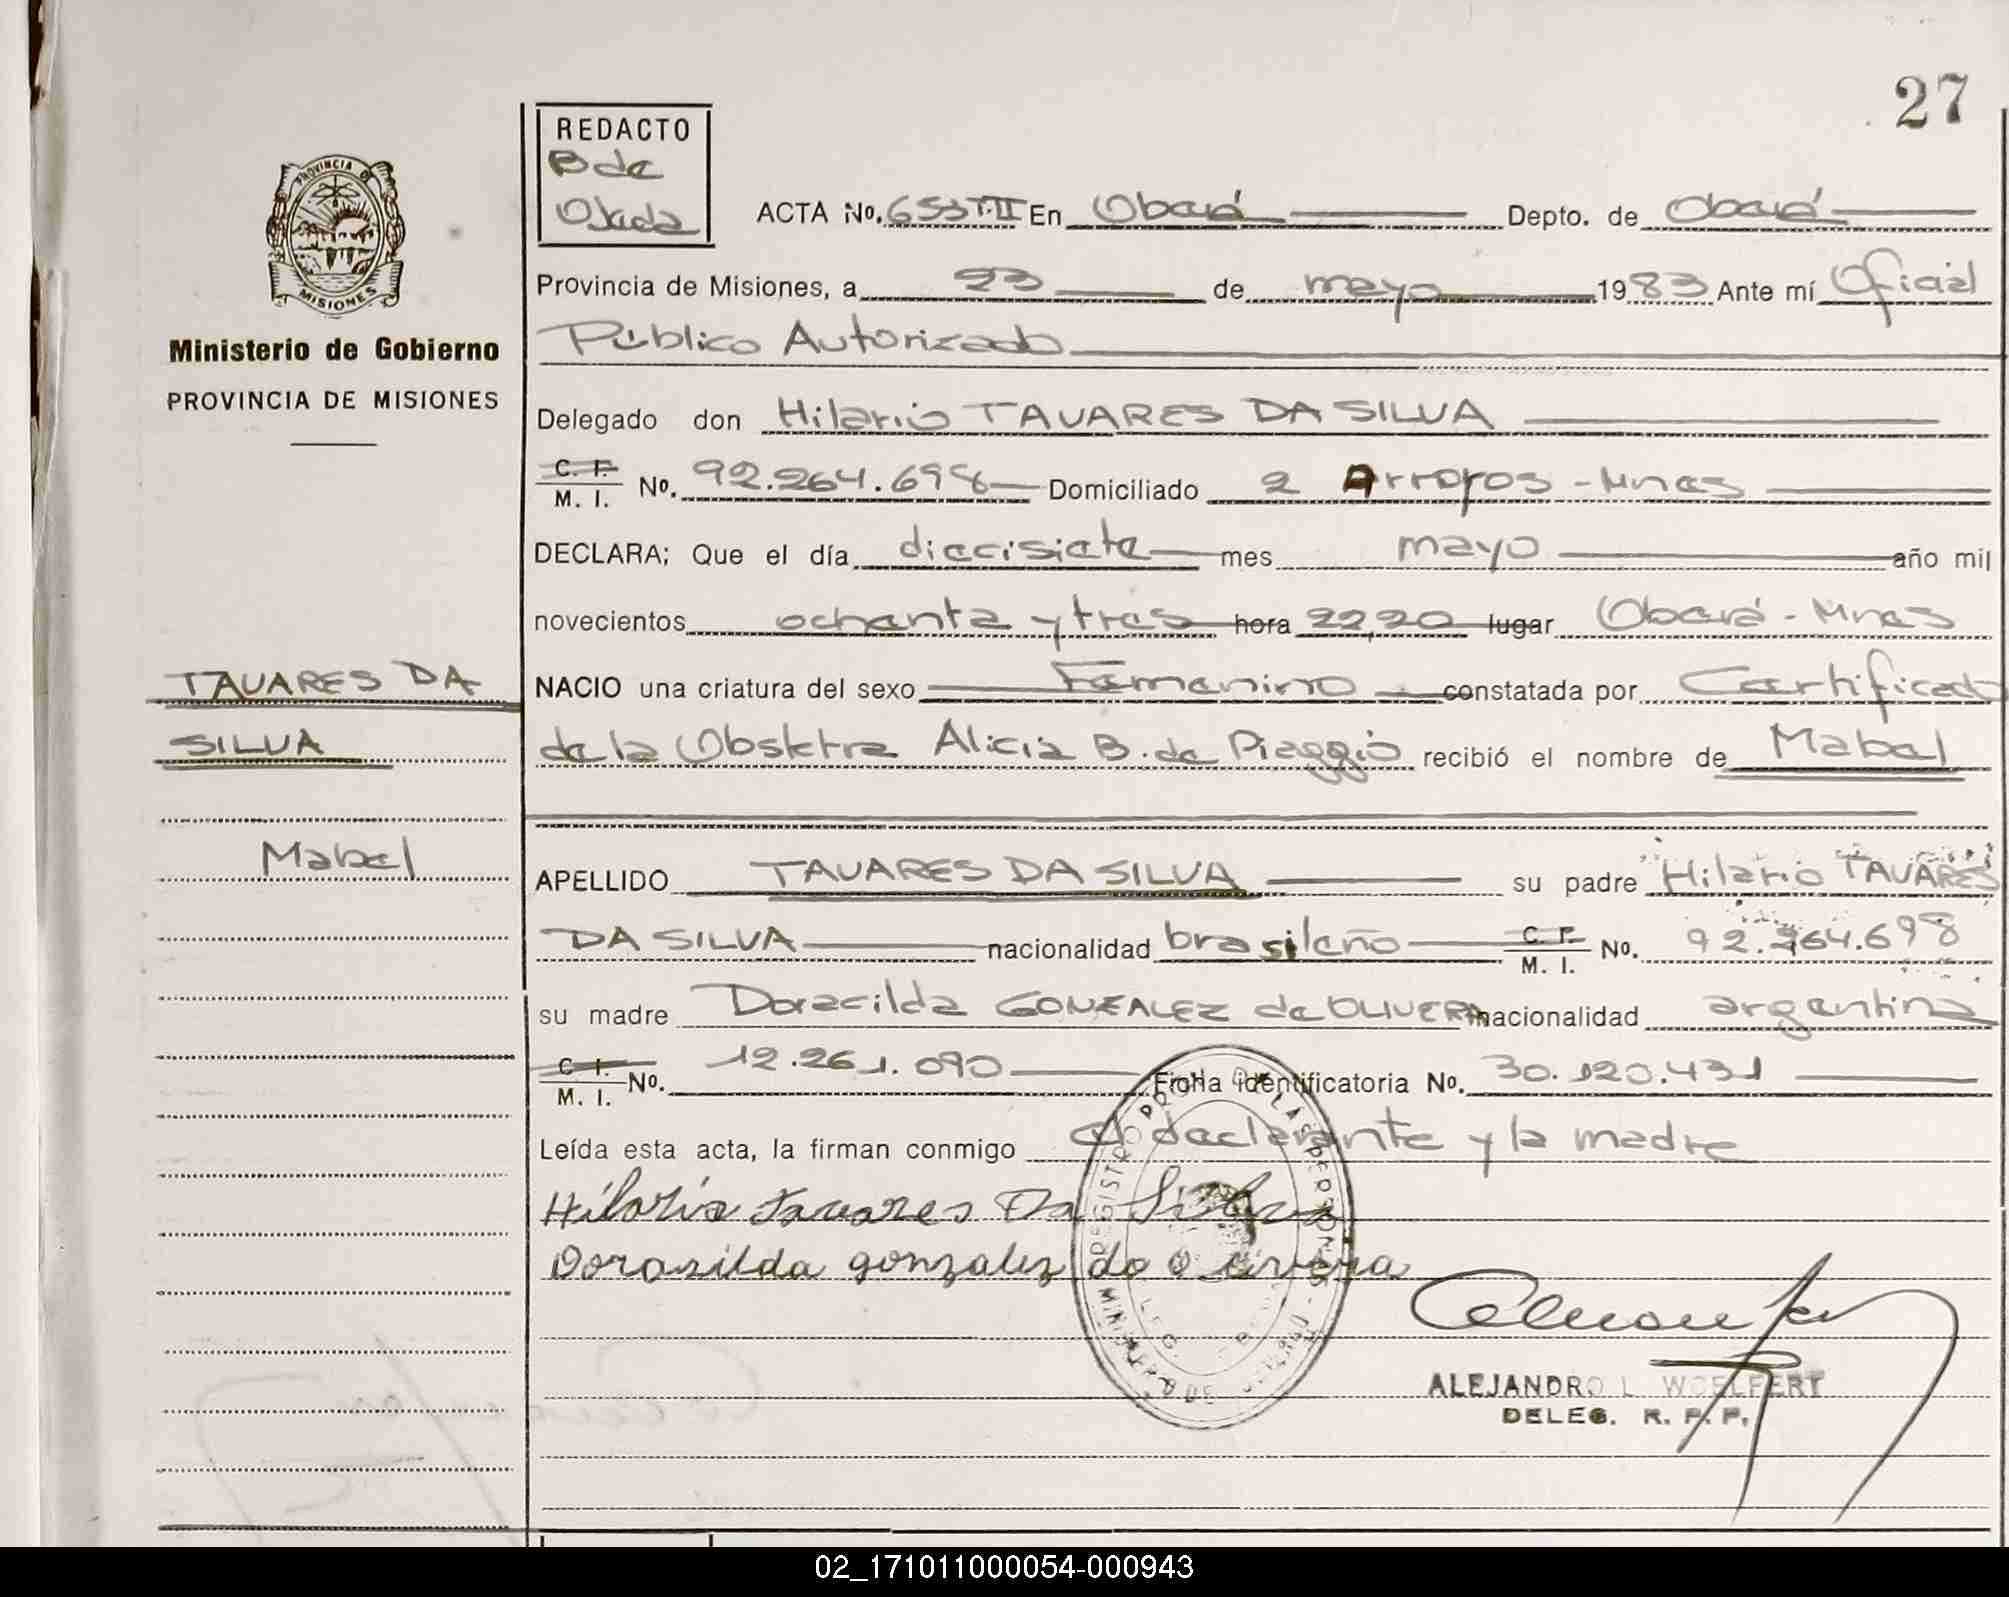 27
REDACTO
B de
Ojeda
ACTA No. 653 T.II En Oberá Depto. de Oberá
Provincia de Misiones, a 23 de mayo 1983 Ante mí Oficial
Público Autorizado
Delegado don Hilario TAVARES DA SILVA
C. I.
M. I. No. 92.264.698 Domiciliado 2 Arroyos - Mnes
DECLARA; Que el día diecisiete mes mayo año mil
novecientos ochenta y tres hora 22,20 lugar Oberá - Mnes
NACIO una criatura del sexo Femenino constatada por Certificado
de la Obstetra Alicia B. de Piaggio recibió el nombre de Mabel
APELLIDO TAVARES DA SILVA su padre Hilario TAVARES
DA SILVA nacionalidad brasileño C. I.
M. I. No. 92.264.698
su madre Doracilda GONZALEZ de OLIVERA nacionalidad argentina
C. I.
M. I. No. 12.261.090 Ficha identificatoria No. 30.120.431
Leída esta acta, la firman conmigo el declarante y la madre
Hilario Tavares Da Silva
Dorasilda gonzalez do olivera
ALEJANDRO L. WOELFERT
DELEG. R. P. P.
PROVINCIA DE
MISIONES
Ministerio de Gobierno
PROVINCIA DE MISIONES
TAVARES DA
SILVA
Mabel
02_171011000054-000943